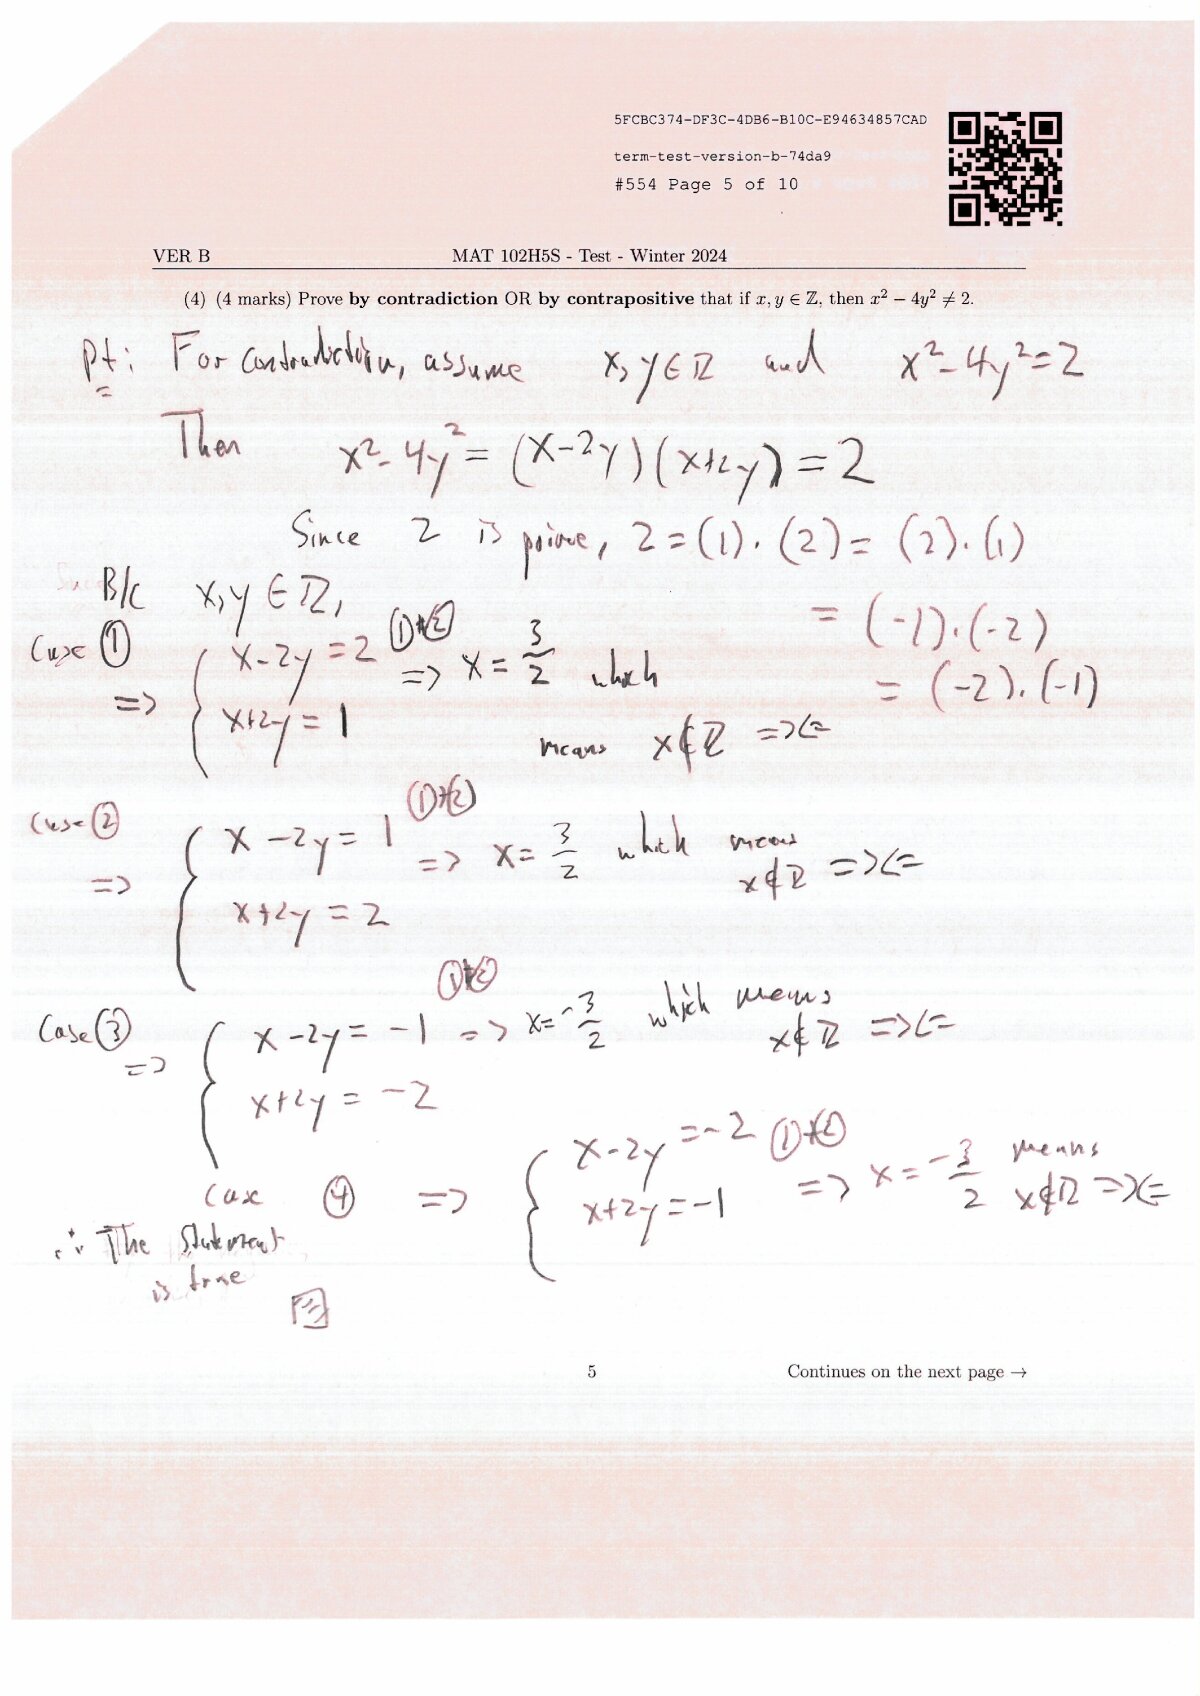 5FCBC374-DF3C-4DB6-B10C-E94634857CAD
term-test-version-b-74da9
#554 Page 5 of 10
VER B MAT 102H5S - Test - Winter 2024
(4) (4 marks) Prove by contradiction OR by contrapositive that if x, y ∈ ℤ, then x² − 4y² ≠ 2.
Pf: For contradiction, assume x, y ∈ ℤ and x² - 4y² = 2
Then x² - 4y² = (x-2y)(x+2y) = 2
Since 2 is prime, 2 = (1)·(2) = (2)·(1)
= (-1)·(-2)
= (-2)·(-1)
B/c x, y ∈ ℤ,
Case ① => { x-2y = 2 ①+② => x = 3/2 which
x+2y = 1
means x ∉ ℤ =><=
Case ② => { x-2y = 1 ①+② => x = 3/2 which means
x+2y = 2
x ∉ ℤ =><=
Case ③ => { x-2y = -1 ①+② => x = -3/2 which means
x+2y = -2
x ∉ ℤ =><=
Case ④ => { x-2y = -2 ①+② => x = -3/2 means
x+2y = -1
x ∉ ℤ =><=
∴ The statement
is true
5
Continues on the next page →